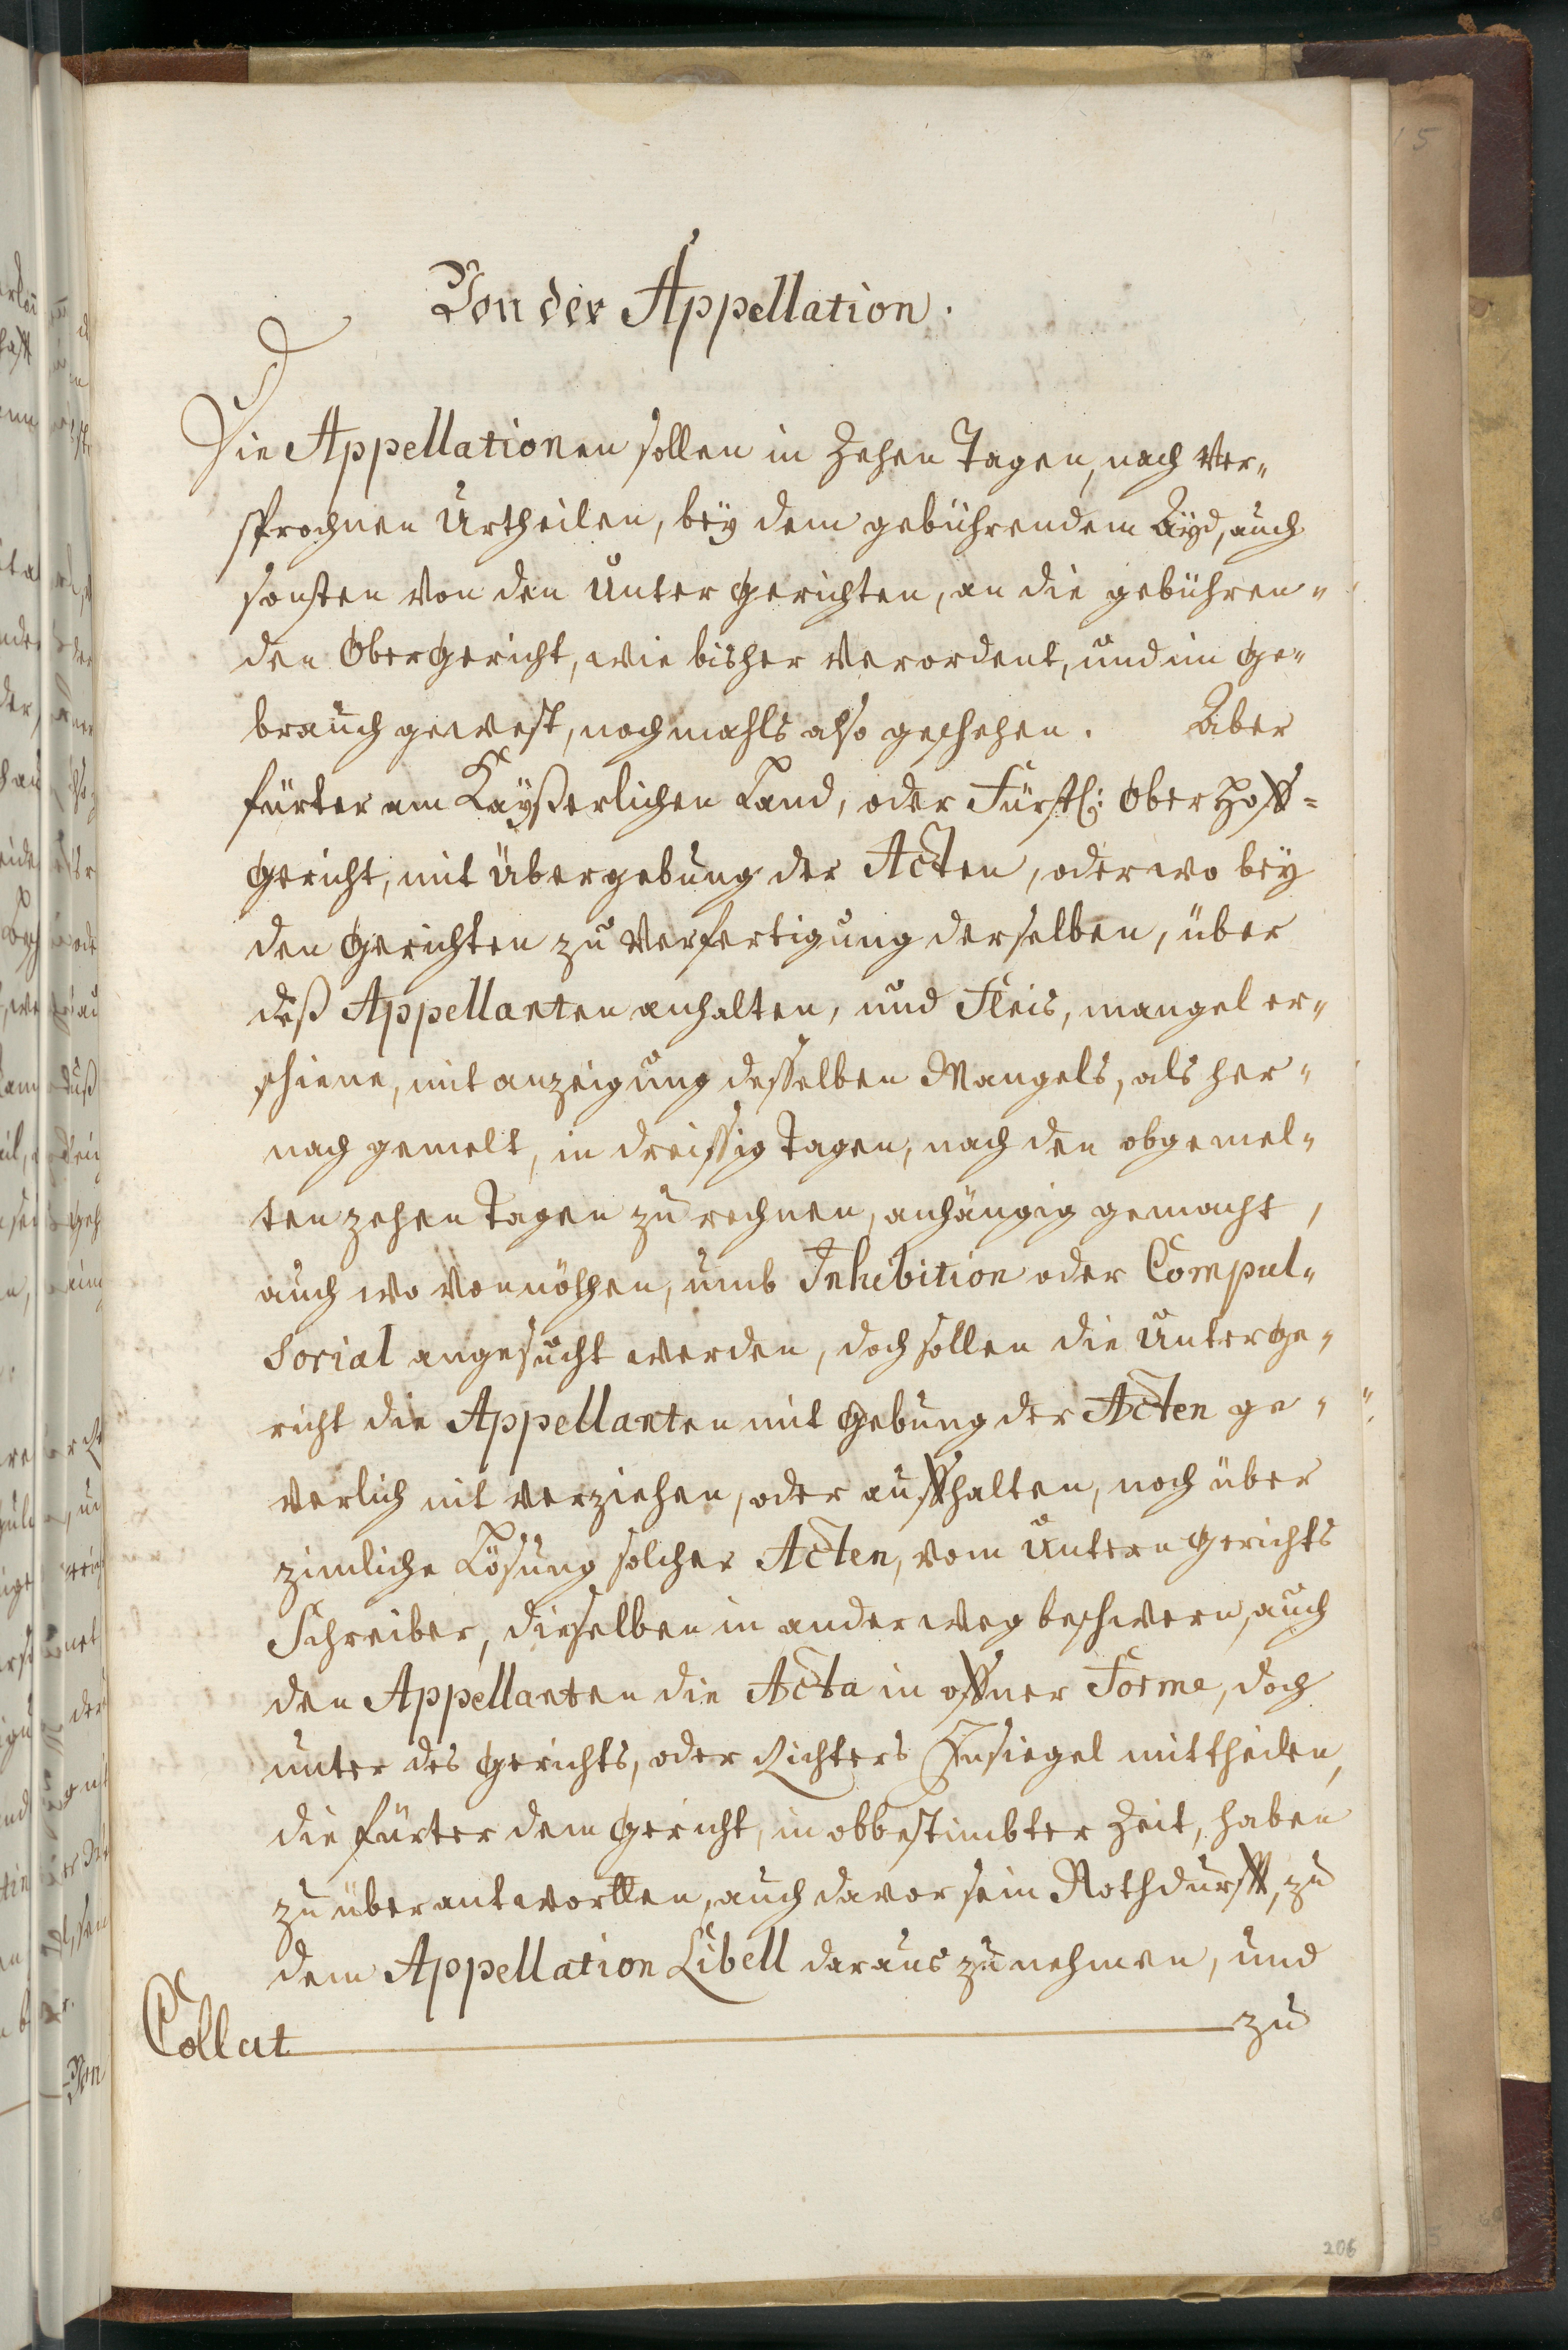 Von der Appellation.
Die Appellationen sollen in Zehen Tagen, nach Ver„
sprochnen Urtheilen, beÿ dem gebührendem Aÿd, auch
sonsten von den Unter Gerichten, an die gebühren„
den Obergericht, wie bisher verordent, und im Ge„
brauch gewest, nochmahls also geschehen. Aber
fürter am Kaÿßerlichen Land, oder Fürstl: Ober Hoff=
Gericht, mit Übergebung der Acten, oder wo beÿ
den Gerichten zu Verfertigung derselben, über
deß Appellanten anhalten, und Fleis, mangel er„
schiene, mit anzeigung desselben Mangels, als her„
nach gemelt, in dreissig Tagen, nach den obgemel„
ten zehen Tagen zu rechnen, anhängig gemacht,
auch wo vonnöthen, umb Inhibition oder Compul„
sorial angesucht werden, doch sollen die Unterge„
richt die Appellanten mit Gebung der Acten ge„
verlich nit verziehen, oder auffhalten, noch über
zimliche Lösung solcher Acten, vom Untern Gerichts
Schreiber, dieselben in ander weg beschwern, auch
den Appellanten die Acta in offner Forme, doch
unter des Gerichts, oder Richters Insiegel mittheilen,
die fürter dem Gericht, in obbestimbter Zeit, haben
zu überantwortten, auch davor sein Nothdurfft, zu
dem Appellation Libell daraus zu nehmen, und
Collat zu
206